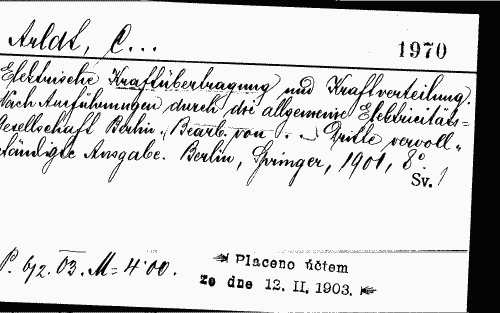 Arldt, C...
1970
Elektrische Kraftübertragung und Kraftverteilung.
Nach Ausführungen durch die allgemeine Elektricitäts=
Gesellschaft Berlin, Bearb. von . - Dritte vervoll„
ständigte Ausgabe. Berlin, Springer, 1901, 8°
Sv. 1
P. 6/2. 03. M= 4·00.
Placeno účtem
ze dne 12. II. 1903.